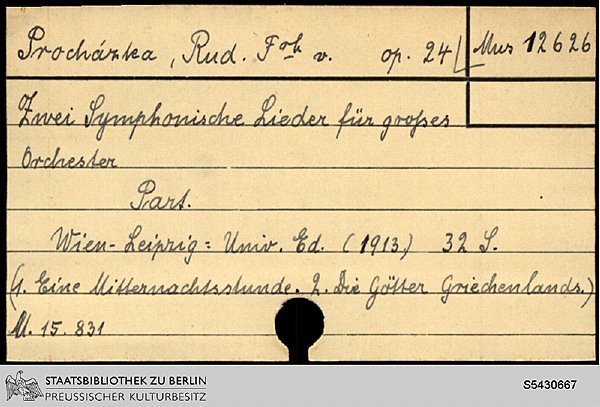 Procházka, Rud. Frh v. op. 24 Mus 12626
Zwei Symphonische Lieder für großes
Orchester
Part.
Wien-Leipzig: Univ. Ed. (1913) 32 S.
(1. Eine Mitternachtsstunde. 2. Die Götter Griechenlands.)
M. 15. 831
STAATSBIBLIOTHEK ZU BERLIN
PREUSSISCHER KULTURBESITZ
S5430667